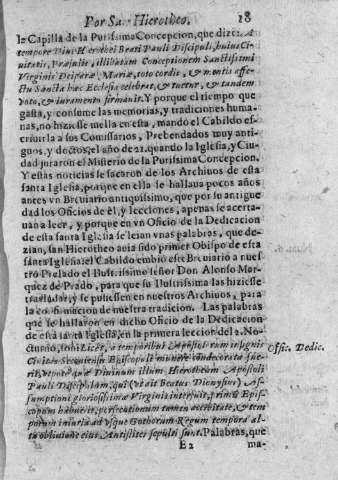 Por San Hierotheo. 18
la Capilla de la Purissima Concepcion, que dize: A
tempore Diui Hierothei Beati Pauli Discipuli, huius Ci-
uitatis, Præsulis, illibatam Conceptionem Sanctissimi
Virginis Deiparæ, Mariæ, toto cordis, & mentis affe-
ctu Sancta hæc Ecclesia celebrat, & tuetur, & tandem
voto, & iuramento firmauit. Y porque el tiempo que
gasta, y consume las memorias, y tradiciones huma-
nas, no hiziesse mella en esta, mandò el Cabildo es-
criuirla a sus Comissarios, Prebendados muy anti-
guos, y doctos, el año de 21. quando la Iglesia, y Ciu-
dad juraron el Misterio de la Purissima Concepcion.
Y estas noticias se sacaron de los Archiuos de esta
santa Iglesia, porque en ella se hallaua pocos años
antes vn Breuiario antiquissimo, que por su antigue
dad los Oficios de èl, y lecciones, apenas se acerta-
uan a leer, y porque en vn Oficio de la Dedicacion
de esta santa Iglesia se leian vnas palabras, que de-
zian, san Hierotheo auia sido primer Obispo de esta
santa Iglesia: el Cabildo embiò este Breuiario a nues-
tro Prelado el Ilustrissimo señor Don Alonso Mar-
quez de Prado, para que su Ilustrissima las hiziesse
trasladar, y se pusiessen en nuestros Archiuos, para
la confirmacion de nuestra tradicion. Las palabras
que se hallaron en dicho Oficio de la Dedicacion
de esta santa Iglesia, en la primera leccion del 2. No-
cturno, Licèt, à temporibus Apostolorum insignis
Ciuitas Secuuiensis Episcopali munere condecorata fue-
rit, utpote quæ Diuinum illum Hierotheum Apostoli
Pauli Discipulum, qui (ut ait Beatus Dionysius) As-
sumptioni gloriosissimæ Virginis interfuit, primũ Epis-
copum habuerit, persecutionum tamen acerbitate, & tem
porum iniuria ad vsque Gothorum Regum tempora al-
ta obliuione eius Antistites sepulti sunt. Palabras, que
Offic. Dedic.
E 2 ma-